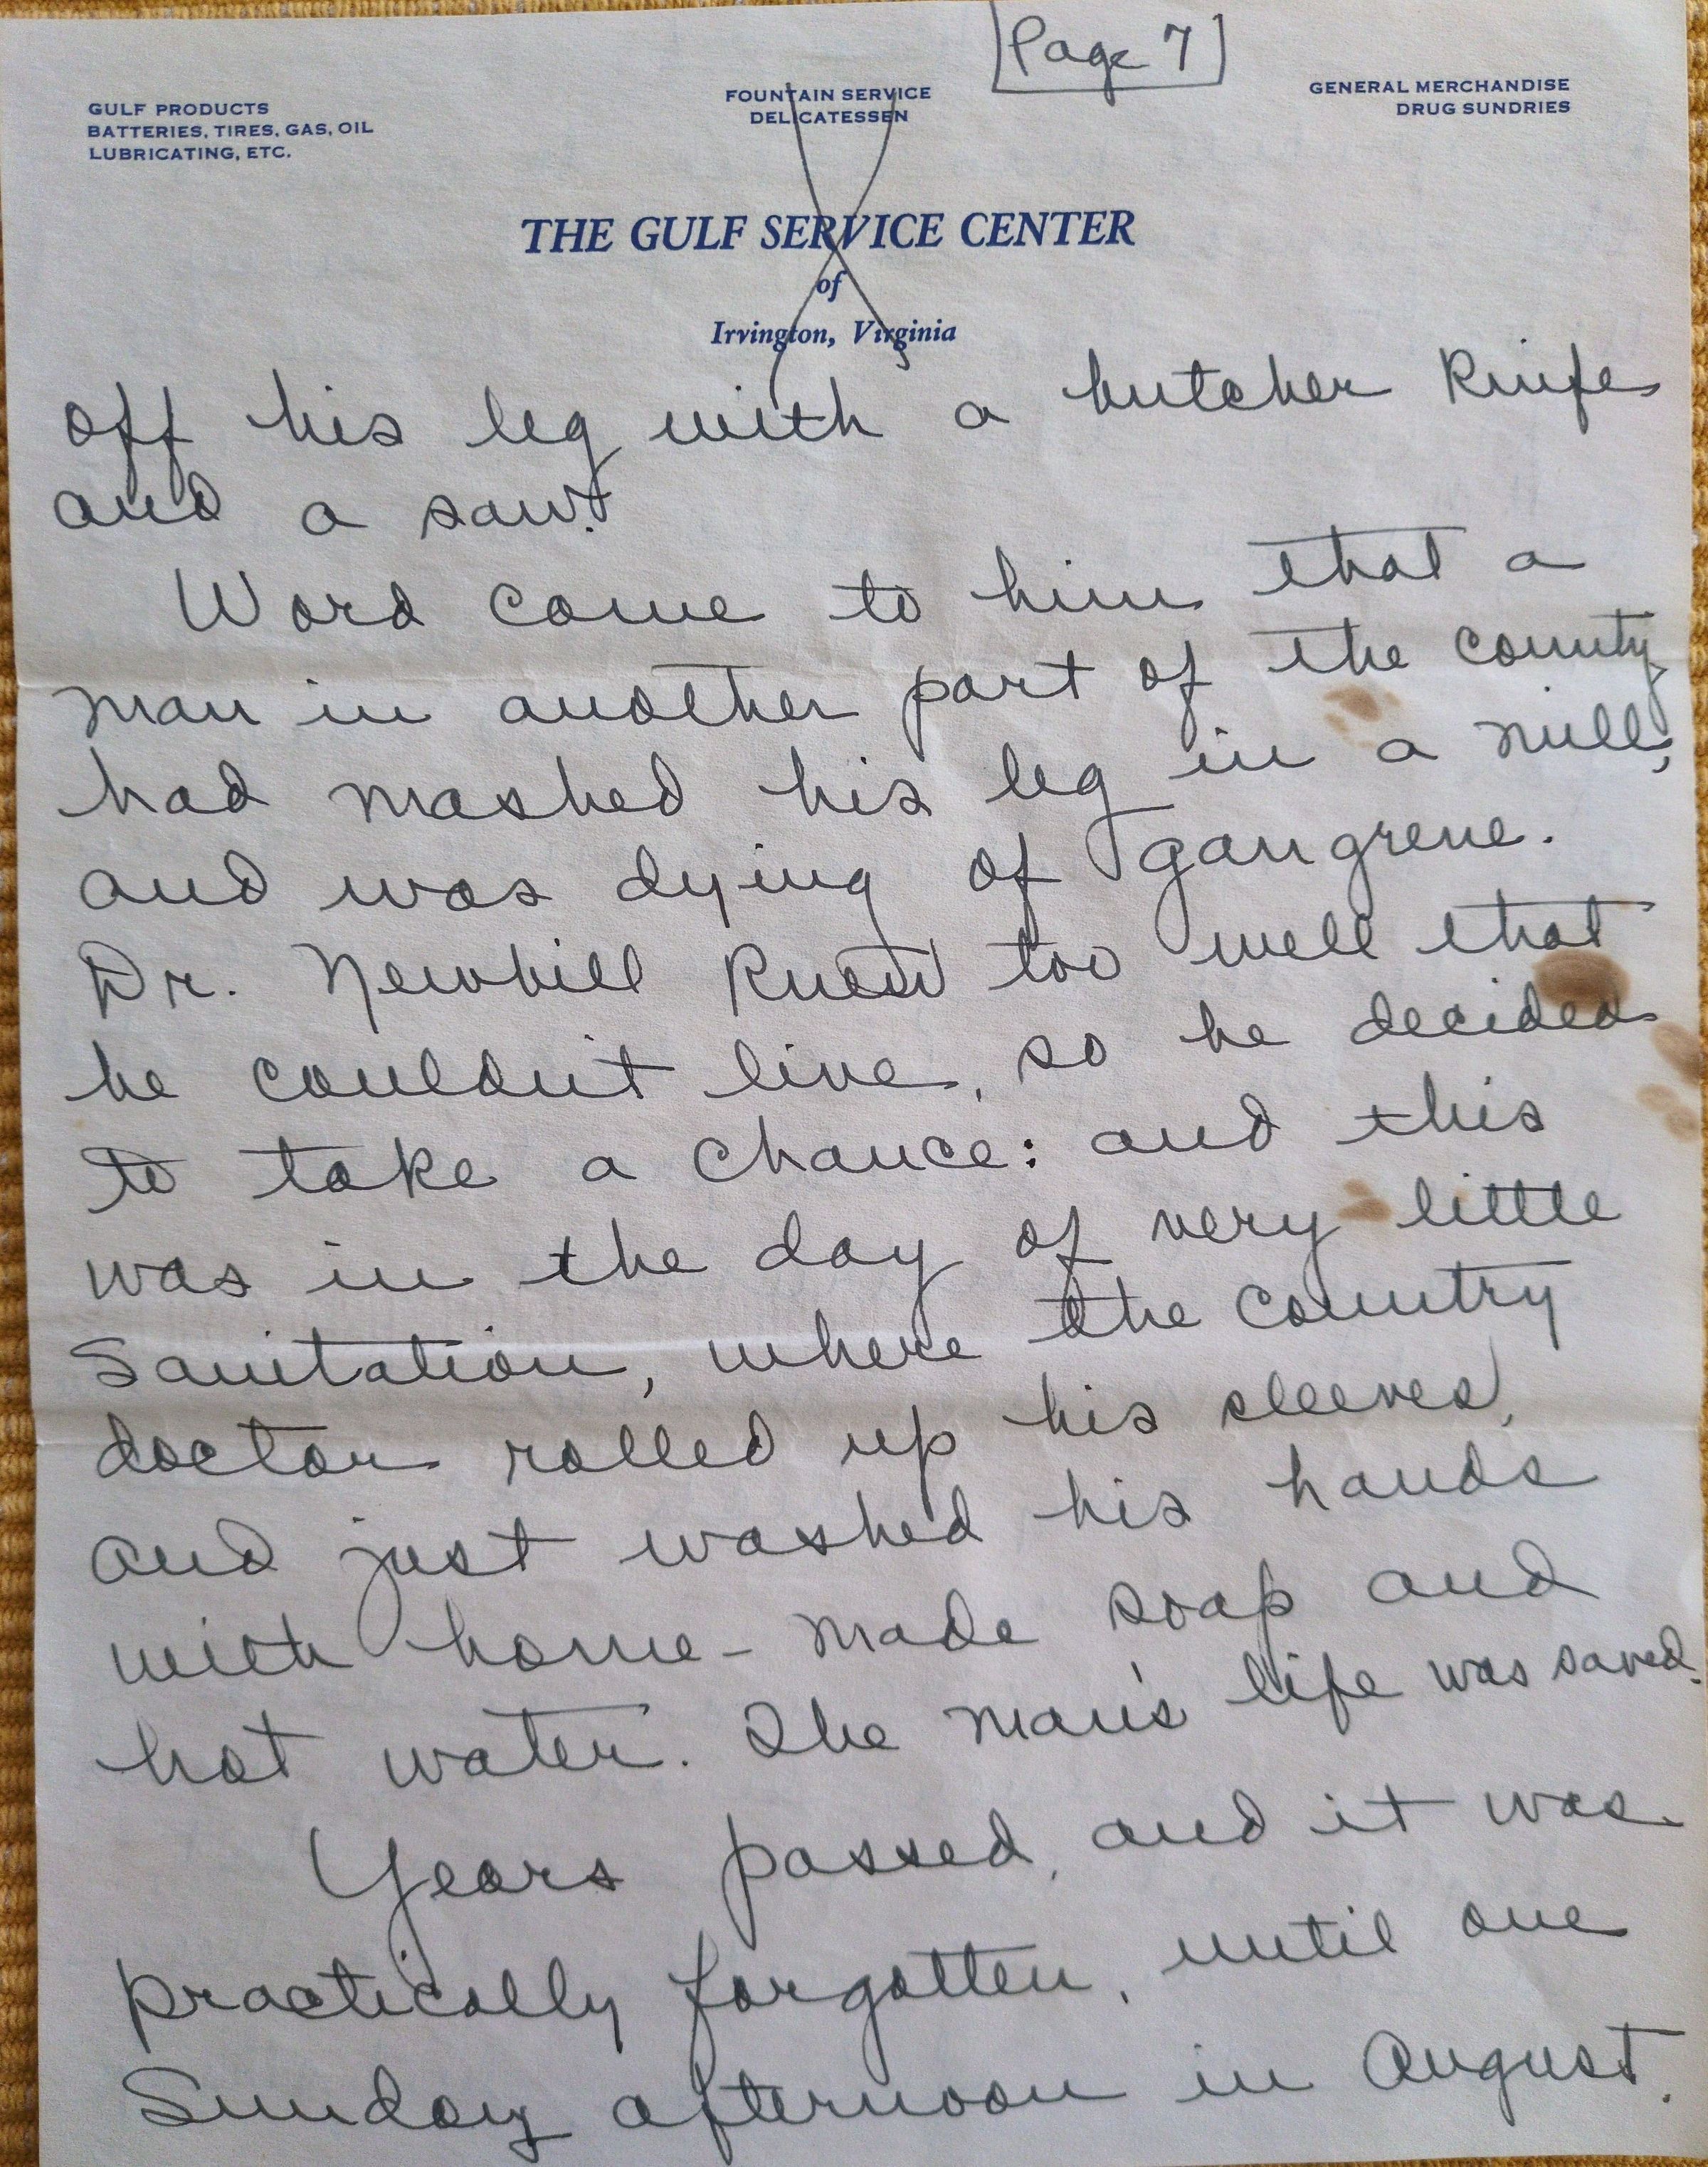 [Page 7]
GULF PRODUCTS
BATTERIES, TIRES, GAS, OIL
LUBRICATING, ETC.
FOUNTAIN SERVICE
DELICATESSEN
GENERAL MERCHANDISE
DRUG SUNDRIES
THE GULF SERVICE CENTER
of
Irvington, Virginia
off his leg with a butcher Knife
and a saw.
Word came to him that a
man in another part of the county
had mashed his leg in a mill,
and was dying of gangrene.
Dr. Newbill Knew too well that
he couldn't live, so he decided
to take a chance: and this
was in the day of very little
Sanitation, where the country
doctor rolled up his sleeves,
and just washed his hands
with home-made soap and
hot water. The man's life was saved.
Years passed, and it was
practically forgotten, until one
Sunday afternoon in August.